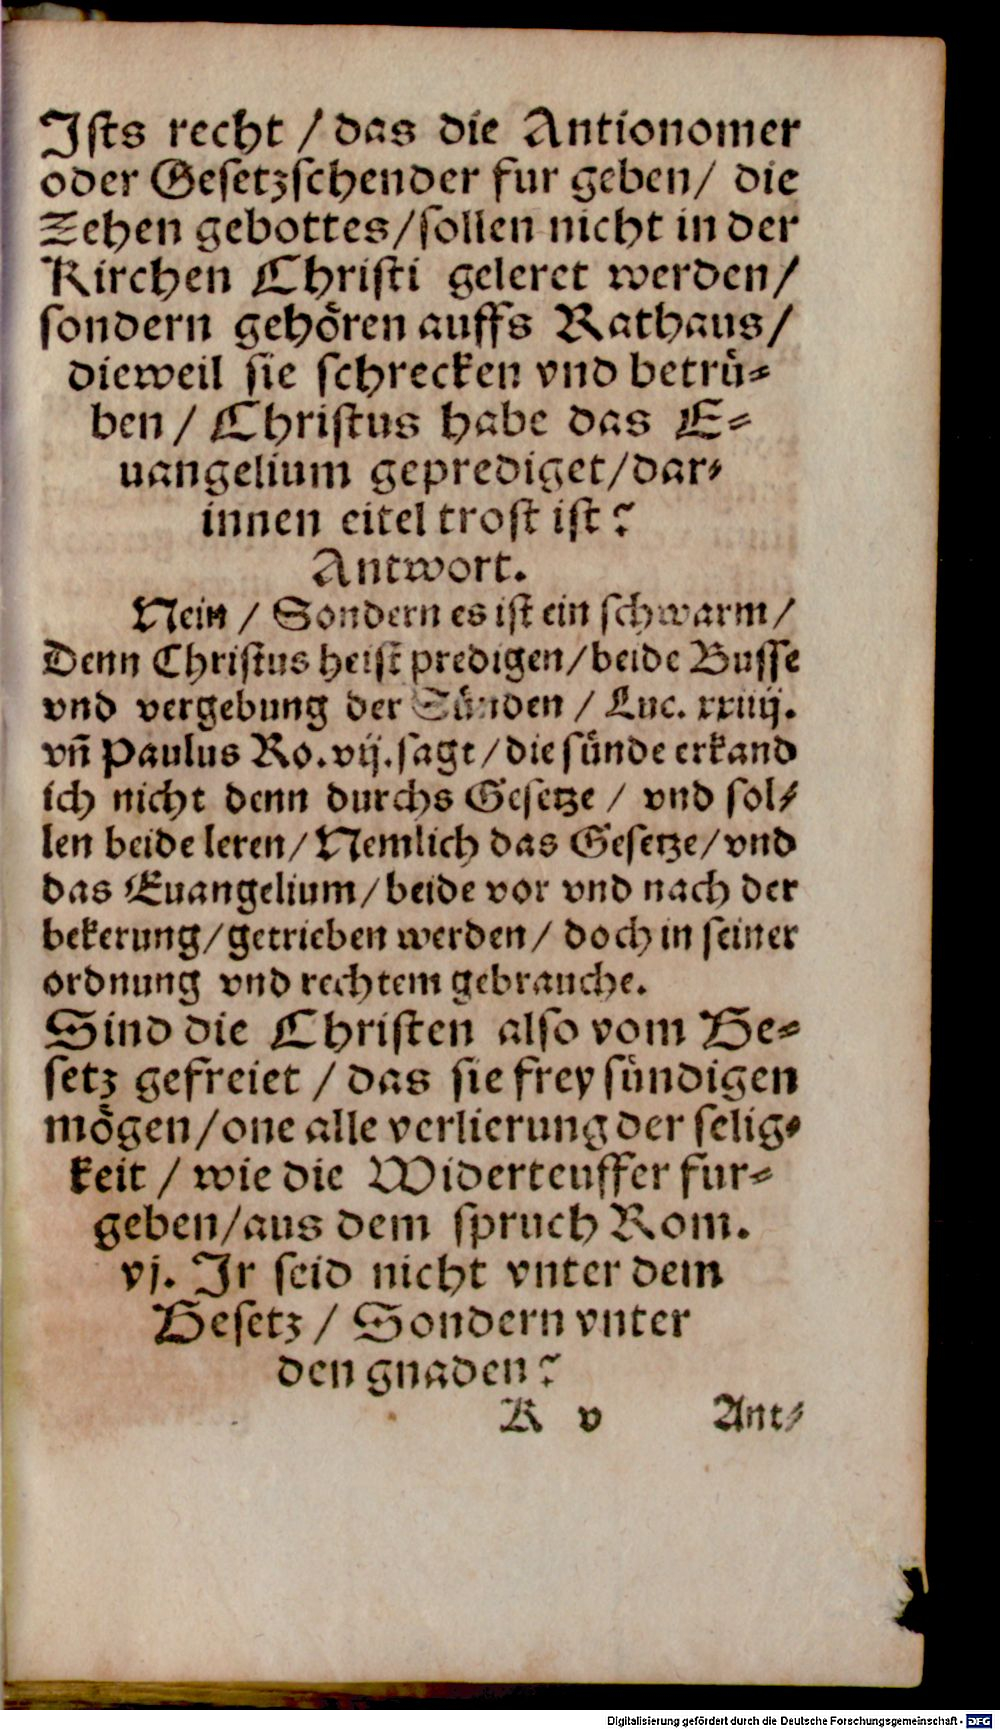 Jsts recht / das die Antionomer
oder Gesetzschender fur geben / die
Zehen gebottes / sollen nicht in der
Kirchen Christi geleret werden /
sondern gehoͤren auffs Rathaus /
dieweil sie schrecken vnd betruͤ⸗
ben / Christus habe das E⸗
uangelium geprediget / dar⸗
innen eitel trost ist?
Antwort.
Nein / Sondern es ist ein schwarm /
Denn Christus heist predigen / beide Busse
vnd vergebung der Suͤnden / Luc. xxiiij.
vñ Paulus Ro. vij. sagt / die suͤnde erkand
ich nicht denn durchs Gesetze / vnd sol⸗
len beide leren / Nemlich das Gesetze / vnd
das Euangelium / beide vor vnd nach der
bekerung / getrieben werden / doch in seiner
ordnung vnd rechtem gebrauche.
Sind die Christen also vom Ge⸗
setz gefreiet / das sie frey suͤndigen
moͤgen / one alle verlierung der selig⸗
keit / wie die Widerteuffer fur⸗
geben / aus dem spruch Rom.
vj. Jr seid nicht vnter dem
Gesetz / Sondern vnter
den gnaden?
K v Ant⸗
Digitalisierung gefördert durch die Deutsche Forschungsgemeinschaft - DFG